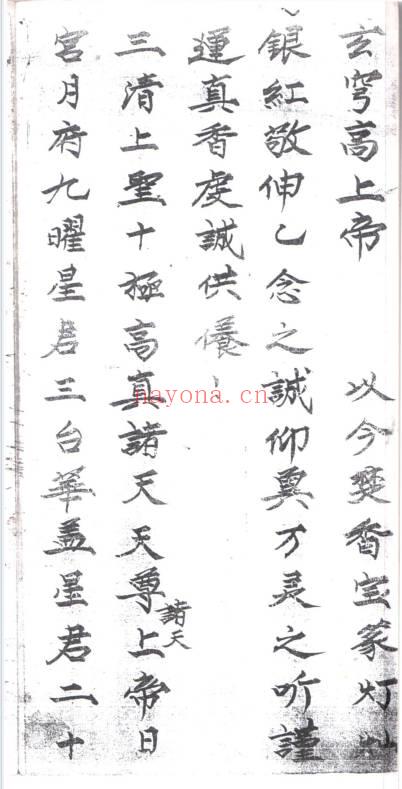 玄穹高上帝 以今焚香宝篆灯灿
银红敬伸乙念之誠仰奠万灵之听謹
運真香虔誠供養
三清上聖十極高真諸天天尊諸天上帝日
宮月府九曜星君三台華盖星君二十
nayona.cn